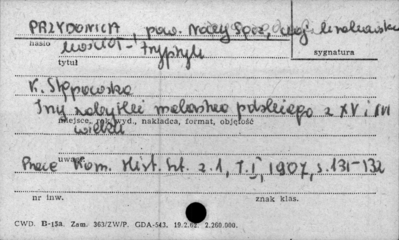 PRZYDONICA, pow. Nowy Sącz, woj. krakowskie
hasło
kościół - tryptyk
sygnatura
tytuł
K. Stępowska
Trzy zabytki malarstwa polskiego z XV i XVI
miejsce, rok wyd., nakładca, format, objętość
wieku
uwagi
Prace Kom. Hist. Szt. z. 1, T. I, 1907, s. 131-132
nr inw.
znak klas.
CWD. B-15a. Zam. 363/ZW/P. GDA-543. 19.2.62. 2.260.000.